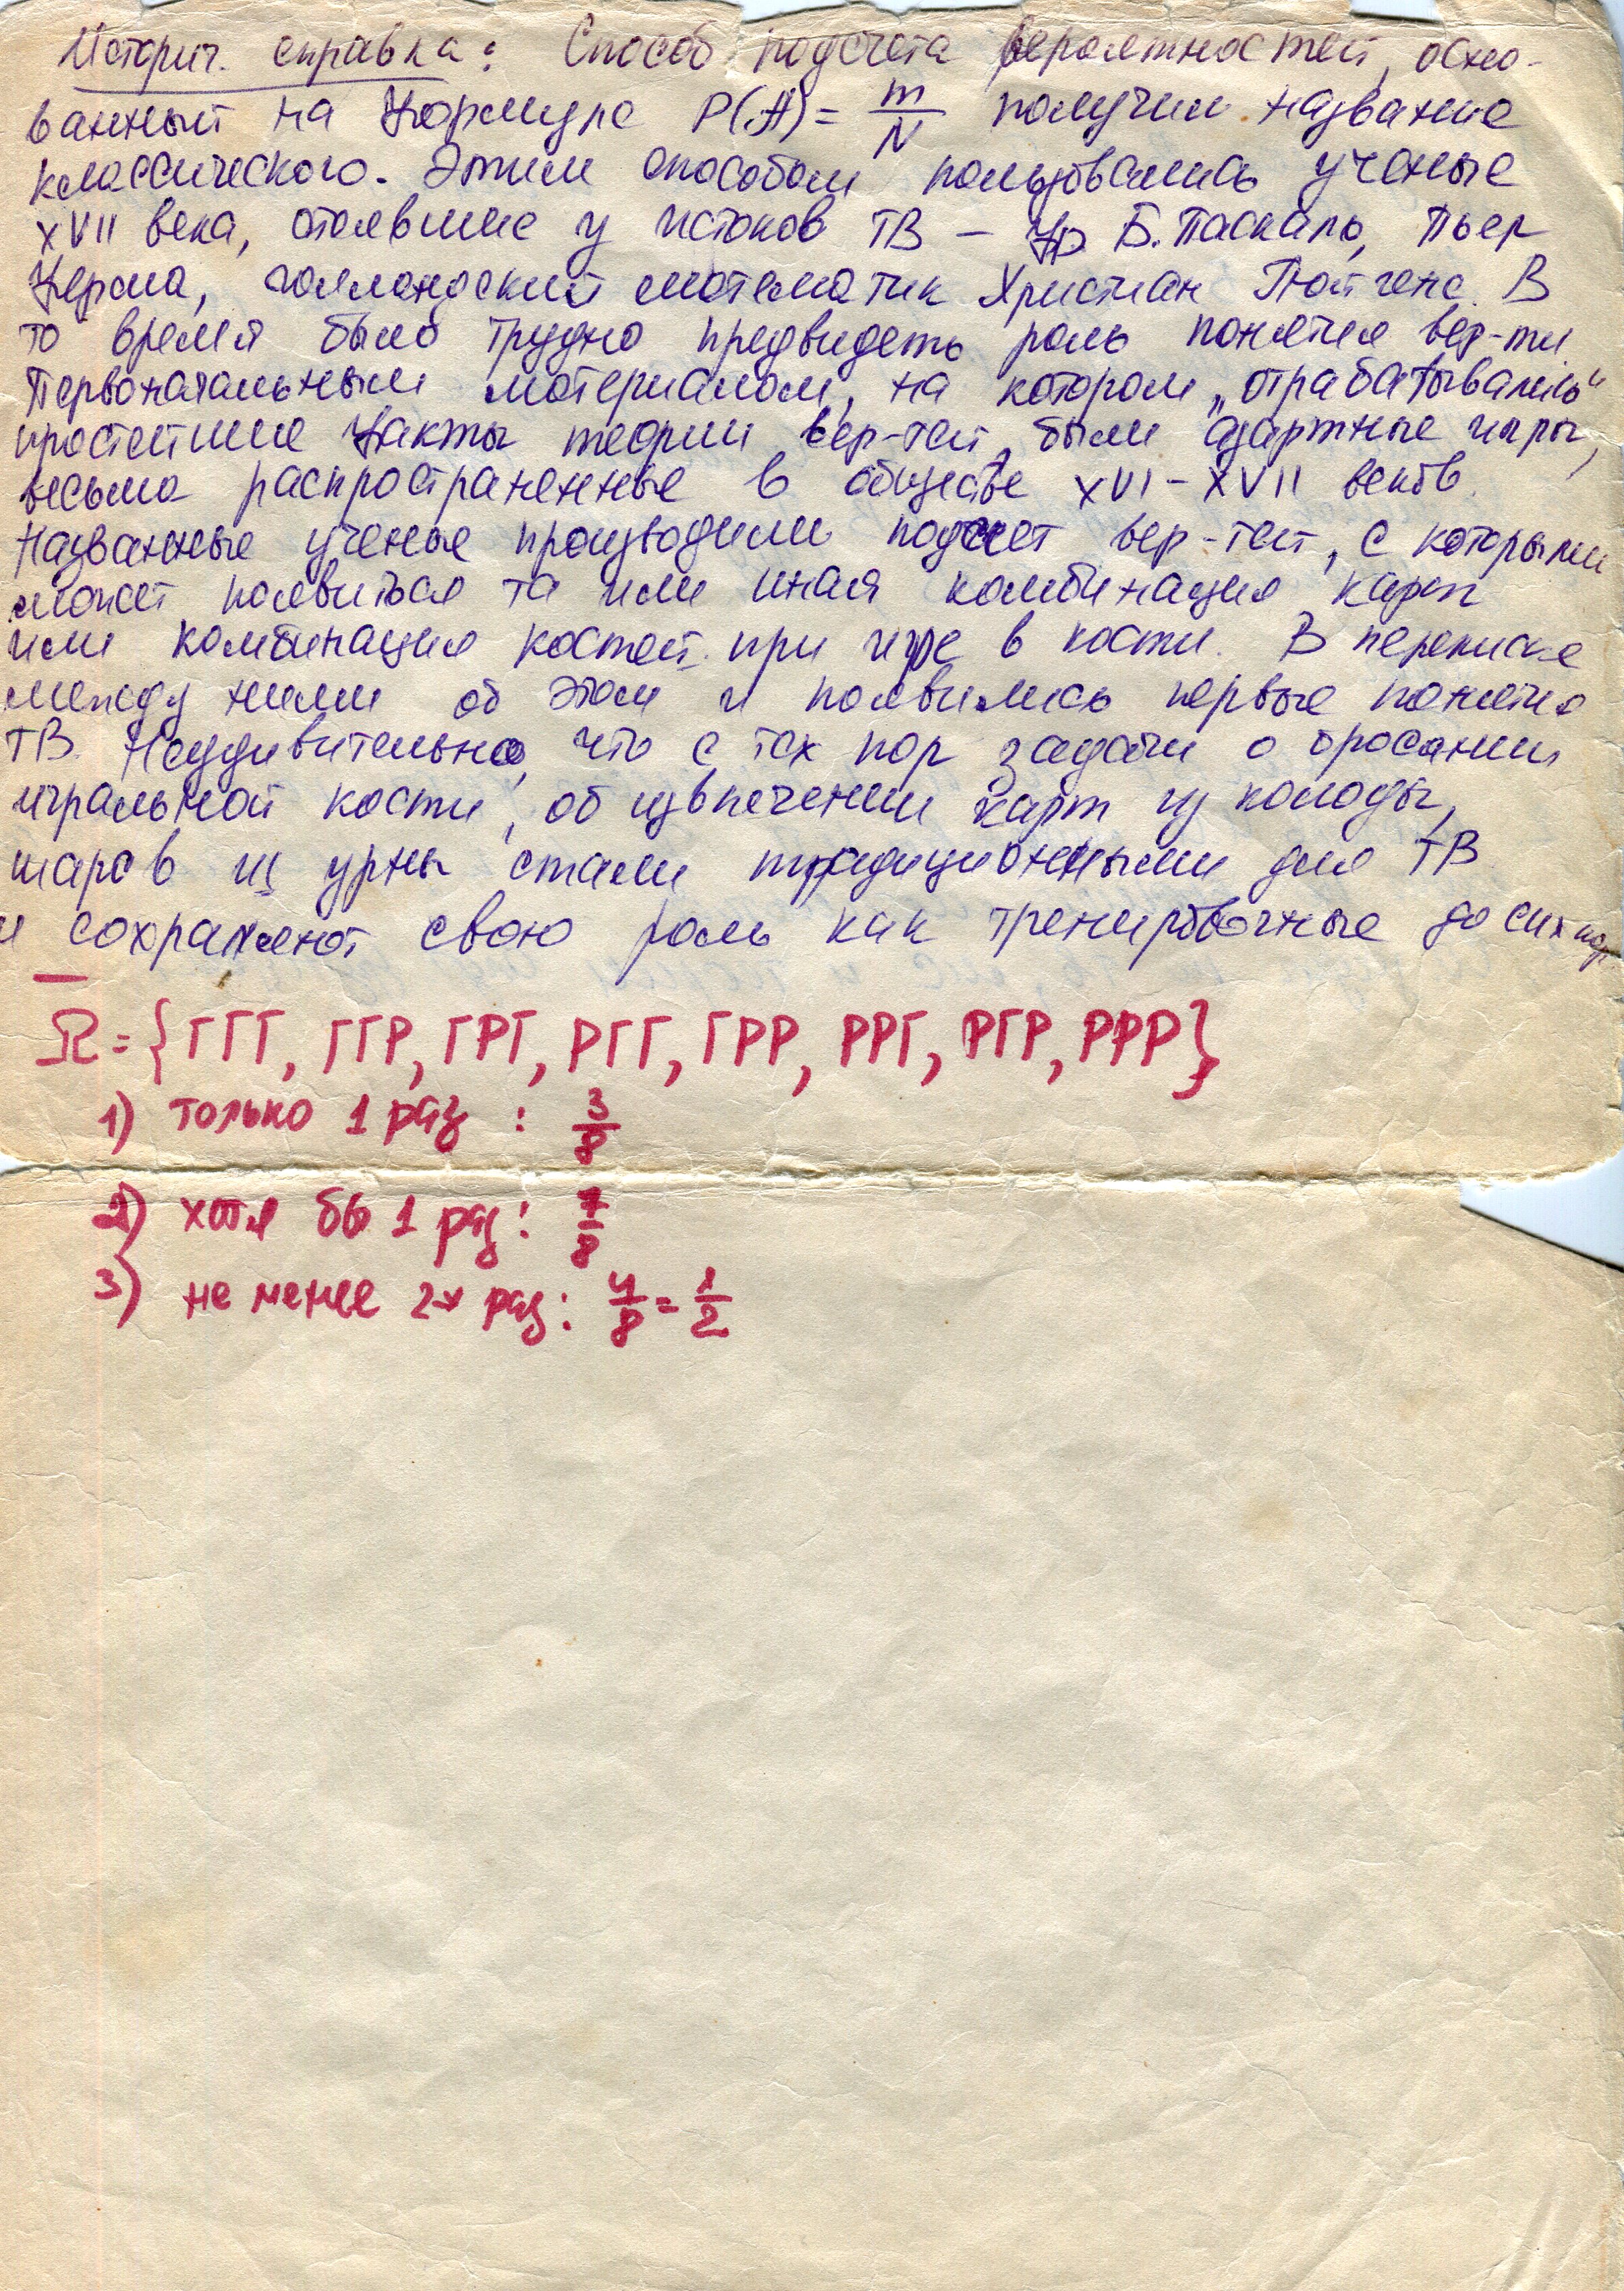 Историч. справка: Способ подсчета вероятностей, осно-
ванный на формуле P(A) = m/N получил название
классического. Этим способом пользовались ученые
XVII века, стоявшие у истоков ТВ – фр. Б. Паскаль, Пьер
Ферма, голландский математик Христиан Гюйгенс. В
то время было трудно предвидеть роль понятия вер-ти.
Первоначальным материалом, на котором „отрабатывались“
простейшие факты теории вер-тей, были азартные игры,
весьма распространенные в обществе XVI – XVII веков.
Названные ученые производили подсчет вер-тей, с которыми
может появиться та или иная комбинация карт
или комбинация костей при игре в кости. В переписке
между ними об этом и появились первые понятия
ТВ. Неудивительно, что с тех пор задачи о бросании
игральной кости, об извлечении карт из колоды,
шаров из урны стали традиционными для ТВ
и сохраняют свою роль как тренировочные до сих пор.
Ω = {ГГГ, ГГР, ГРГ, РГГ, ГРР, РРГ, РГР, РРР}
1) только 1 раз : 3/8
2) хотя бы 1 раз : 7/8
3) не менее 2х раз : 4/8 = 1/2